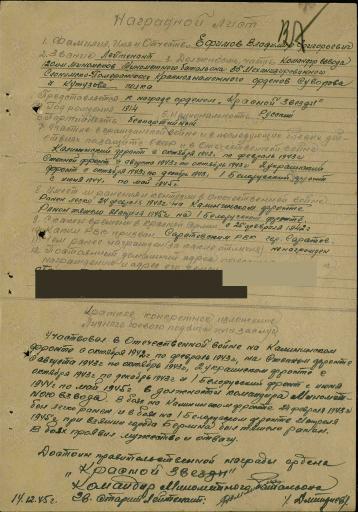 Наградной Лист
1. Фамилия, Имя и Отчество Ефимов Владимир Григорьевич
2. Звание Лейтенант 3. Должность, часть Командир взвода
120мм минометов Минометного Батальона
Краснознаменного орденов Суворова
и Кутузова полка
Представляется к награде орденом "Красной Звезды"
4. Год рождения 1914 5. Национальность Русский
6. Партийность Беспартийный
7. Участие в гражданской войне и последующих боевых дей-
ствиях по защите СССР и в отечественной войне
Калининский фронт с октября 1942г. по февраль 1943г.
Степной фронт с августа 1943г. по октябрь 1943г. 2 Украинский
фронт с октября 1943г. по декабрь 1943г. 1 Белорусский фронт
с июня 1944г. по май 1945г.
8. Имеет ли ранения и контузии в отечественной войне
Ранен легко 24 февраля 1943г. на Калининском фронте.
Ранен тяжело апреля 1945г. на 1 Белорусском фронте
9. С какого времени в красной армии с 25 февраля 1942г.
10. Каким РВК призван Саратовским РВК гор. Саратов.
11. Чем ранее награжден (за какие отличия) не награжден
12. Постоянный домашний адрес
награждению и адрес его семьи
Краткое конкретное изложение
личного боевого подвига или заслуг
Участвовал в Отечественной войне на Калининском
фронте с октября 1942г. по февраль 1943г., на Степном фронте
с августа 1943г. по октябрь 1943г., 2 Украинский фронт с
октября 1943г. по декабрь 1943г. и 1 Белорусский фронт с июня
1944г. по май 1945г. в должности командира Миномет-
ного взвода. В боях на Калининском фронте 24 февраля 1943г
был легко ранен, и в боях на 1 Белорусском фронте апреля
1945г. при взятии города Берлина был тяжело ранен.
В боях проявил мужество и отвагу.
Достоин правительственной награды ордена
"Красной Звезды"
Командир Минометного Батальона
Гв. Старший Лейтенант:
14.12.45г.